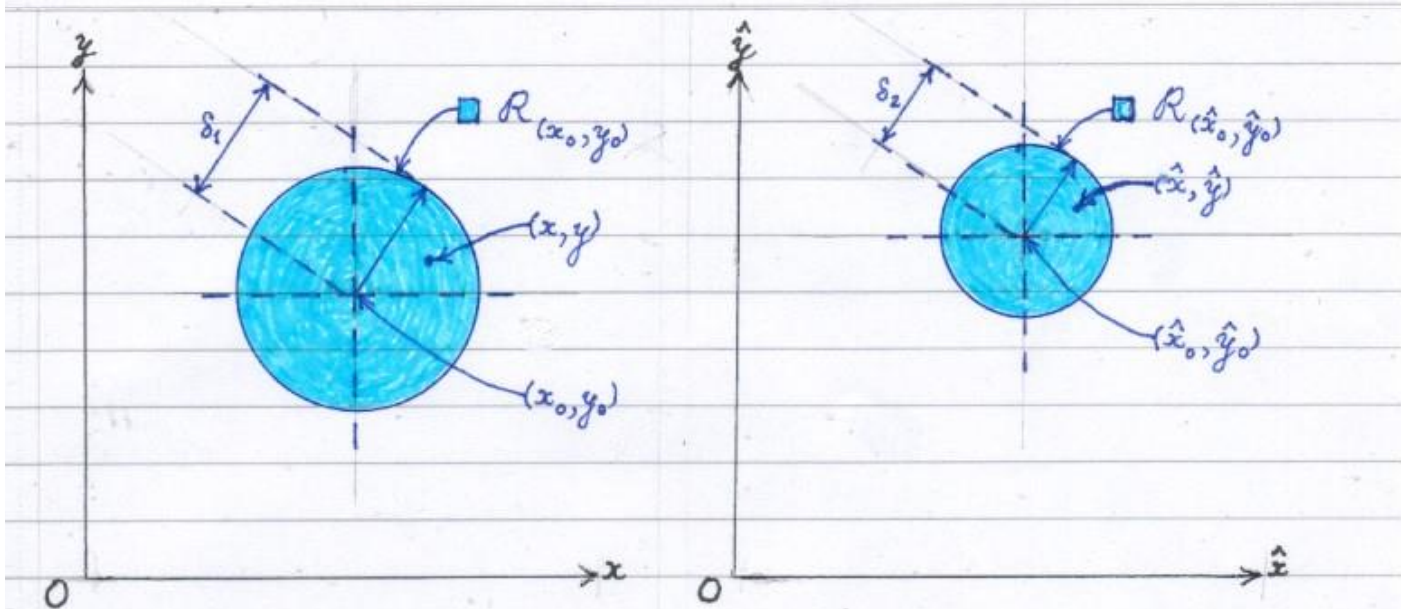 y
δ₁
R(x₀, y₀)
(x, y)
(x₀, y₀)
O
x
ŷ
δ₂
R(x̂₀, ŷ₀)
(x̂, ŷ)
(x̂₀, ŷ₀)
O
x̂